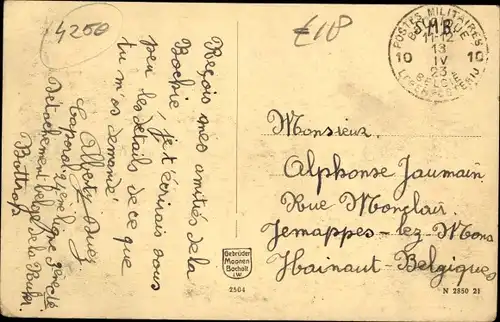 4250
£18
POSTES MILITAIRES
BELGIQUE
11-12
13
IV
23
10 10
Reçois mes amitiés de la
Bochie, je t'écrirais sous
peu les détails de ce que
tu m'as demandé
Albert
Caporal ligne
Détachement belge de la Ruhr
Bottrop
Monsieur
Alphonse Jaumain
Rue Monclair
Jemappes-lez-Mons
Hainaut-Belgique
Gebrüder
Maanen
Bocholt
i.W.
2564
N 2850 21